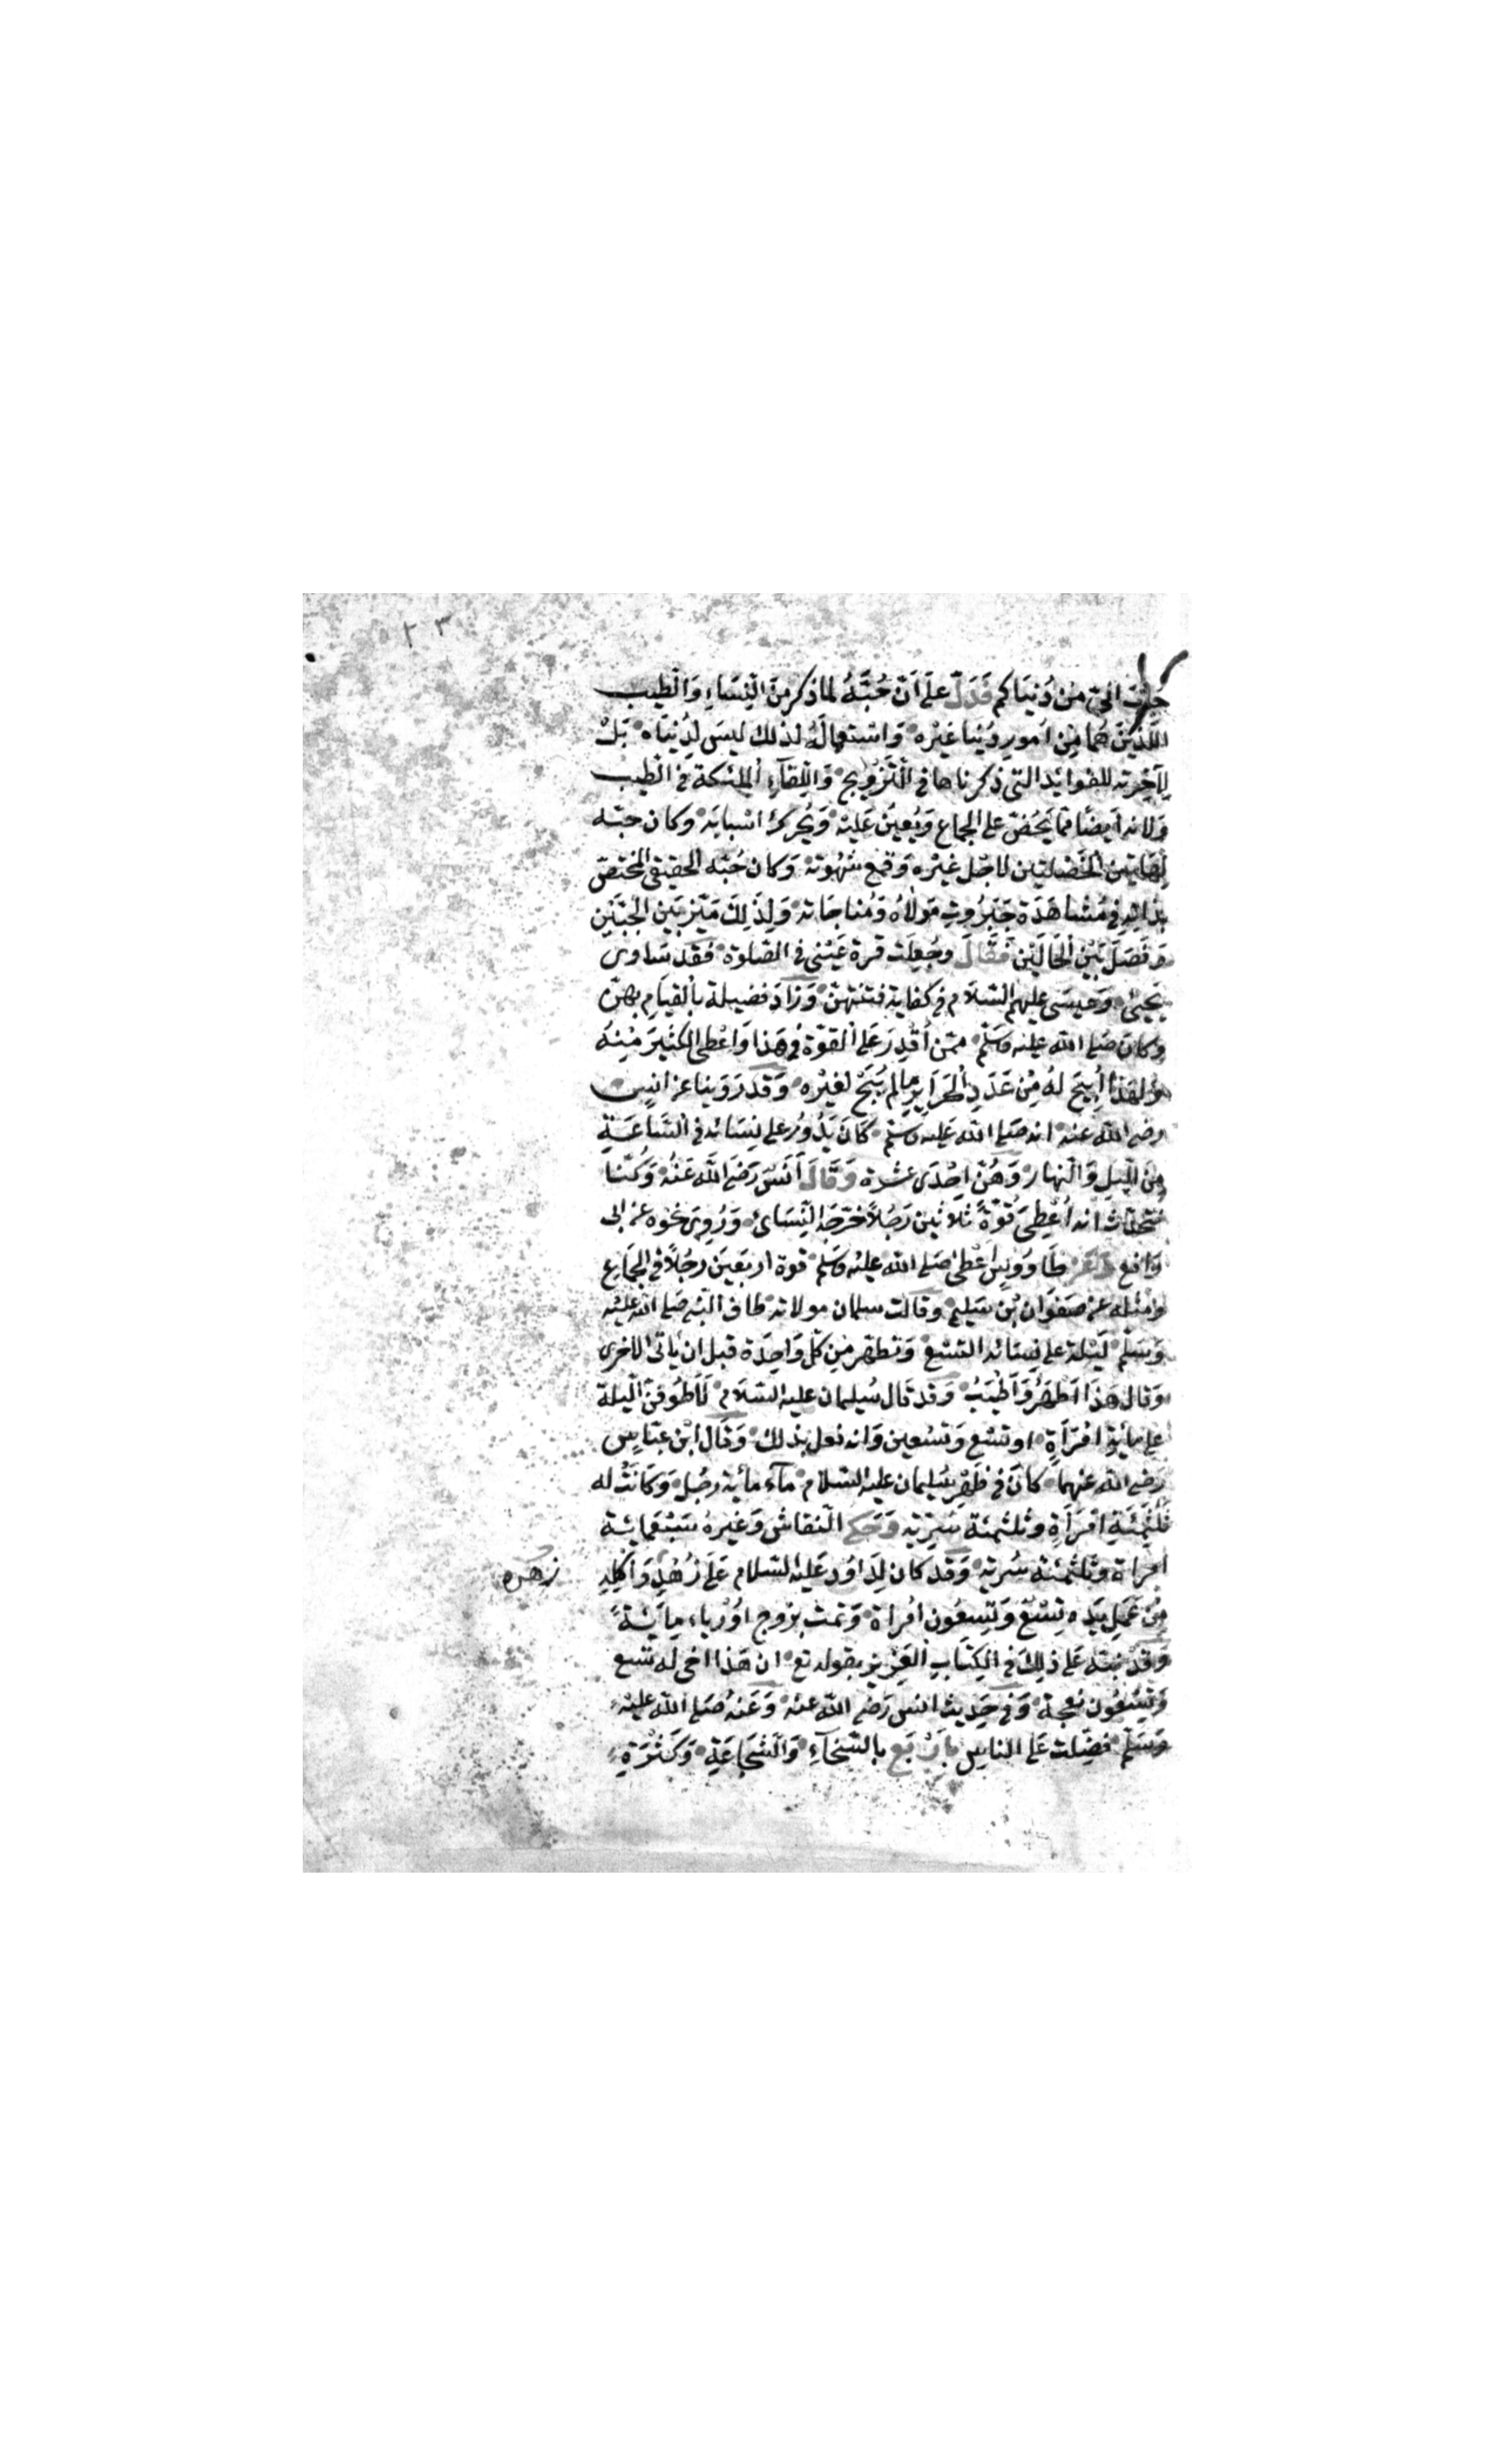 ٢٣
حُبِّبَ اليّ مِنْ دُنيَاكم فَدَلَّ علَى اَنّ حُبَّهُ لماذكر مِنَ النِّسَاءِ وَالطيب
اللّذَيْنَ هُمَا مِن اُمورِ دُنيا غيْره وَاستعمالَهُ لذلك ليسَ لدُنيَاه بَلْ
لآخِرته للفوائد التى ذكرناها فى التَّزْويج وَاللِّقآءِ الملئكة فى الطيب
وَلانه اَيضًا ممّا يَحُضّ على الجماع وَيُعينُ عَليْه وَيُحرك اسْبابَه وكان حبّه
لِهَاتينِ الخَصْلتيْن لاجْل غيْره وَقمْع شهْوته وَكان حُبّه الحقيقى المختصّ
بذاتِهِ فى مُشاهَدَة جَبَرُوتِ مَولاهُ وَمُناجَاته وَلِذَلِكَ مَيّز بَيْن الحُبّيْنِ
وَفَصَلَ بَيْن الحَالَيْن فَقَالَ وجُعِلَت قرة عَيْنى فى الصّلوة فقَد سَاوى
يَحيىٰ وَعيسَى عليهم السّلام فى كفاية فتنتهنّ وَزَادَ فضيلة بالقيَامِ بهنّ
وكانَ صَلى اللّه عليْه وسَلّم ممّن اُقْدِرَ عَلى القوّة فى هَذا وَاُعْطى الكثيرَ مِنْهُ
وَلهَذا اُبيحَ لهُ مِنْ عَدَدِ الحَرَايِر مالم يُبَحْ لغيْره وَقدْ رَوَينا عن انسٍ
رضى اللّه عنه انه صَلى اللّه عَليه وسَلّم كَانَ يَدُورُ على نِسَائه فى السَّاعَةِ
مِنَ الليل وَالنهار وَهُنّ اِحْدَى عشْرة وَقَالَ اَنَسٌ رَضَى اللّه عَنْهُ وَكُنّا
نتحَدّث انه اُعْطِىَ قوّةَ ثلاثين رَجُلاً خرّجَهُ النّسَائى وَرُوِىَ نحوه عن ابى
رَافع وَعَن طَاووسٍ اُعْطىَ صَلى اللّه عليْه وسَلم قوة اربَعينَ رجُلاً فى الجمَاعِ
وَمثله عن صَفوَان بْن سَليم وقالت سلمان مولاته طاف النبّى صَلى اللّه عليْه
وَسَلّم ليْلة على نسَائه التسْع وَتطهر مِن كلّ وَاحِدَة قبل ان يأتى الاخرى
وَقال هَذَا اَطهَرُ وَاَطْيَبُ وَقد قَال سُليمان عليه السّلام لَاَطُوفنّ الليلة
على مائةِ امْرَاَةٍ او تسْع وَتسْعين وَانه فعل بذلك وَقَال ابْن عبّاسٍ
رَضى اللّه عنهما كَانَ فى ظَهْرِ سُليمان عليه السّلام مآء مائة رجُل وَكَانَتْ له
ثَلثُمئَةِ امْرَاَةٍ وثلثمئة سَرّيّه وَحَكى النقاش وَغيرهُ سَبْعَمائة
امراة وثلثمئة سُرية وَقد كان لِدَاوُد عَليْه السّلام عَلى زُهْدِ وَاكلِهِ
زهده
مِن عَمَلِ يَدِه تِسْعٌ وَتِسعُون امْراة وَتمت بزوج اوْريا مايَةً
وَقد نبّه عَلى ذلِكَ فى الكِتَابِ العَزيز بقوله تع ان هَذا اخى له تسع
وَتِسْعُون نعْجة وَفى حَديث انس رَضى اللّه عنه وَعَنْهُ صَلى اللّه عليْه
وَسَلّم فضّلت عَلى الناس بِاَرْبَعٍ بالسَّخآءِ وَالشَّجَاعَةِ وَكَثْرَةِ